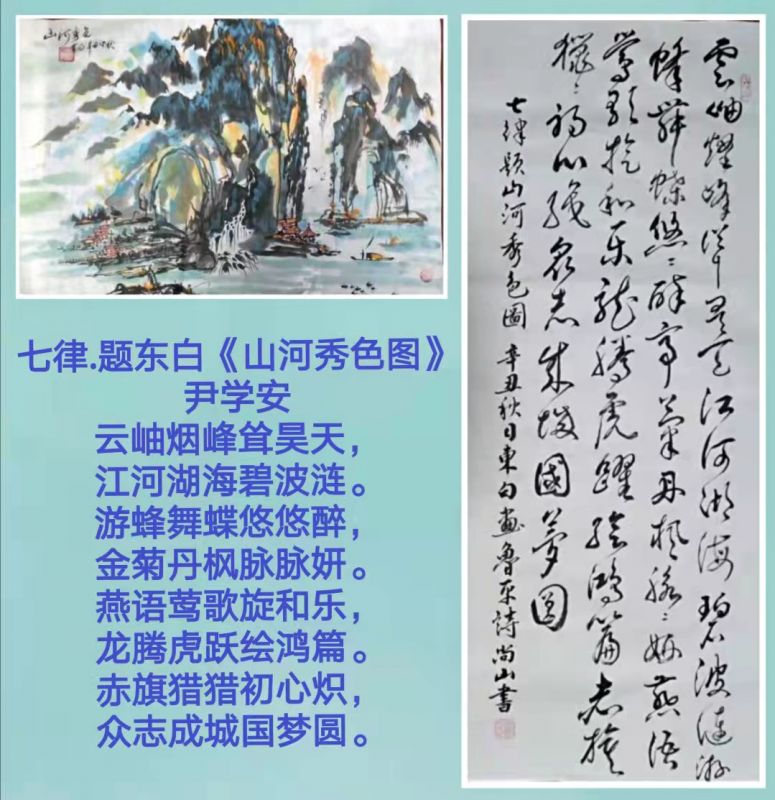 山河秀色
七律.题东白《山河秀色图》
尹学安
云岫烟峰耸昊天，
江河湖海碧波涟。
游蜂舞蝶悠悠醉，
金菊丹枫脉脉妍。
燕语莺歌旋和乐，
龙腾虎跃绘鸿篇。
赤旗猎猎初心炽，
众志成城国梦圆。
雲岫煙峰耸昊天江河湖海碧波涟游
蜂舞蝶悠〻醉金菊丹楓脉〻妍燕语
莺歌旋和乐龙腾虎躍绘鸿篇赤旗
猎〻初心炽众志成城國夢圆
七律题山河秀色圖 辛丑秋日東白画魯平詩尚山書